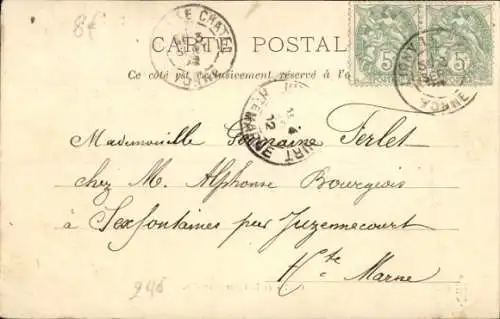 8€
CARTE POSTALE
Ce côté est exclusivement réservé à l'a
5 5
Mademoiselle Germaine Ferlet
chez M. Alphonse Bourgeois
à Sexfontaines par Juzennecourt
Hte Marne
246